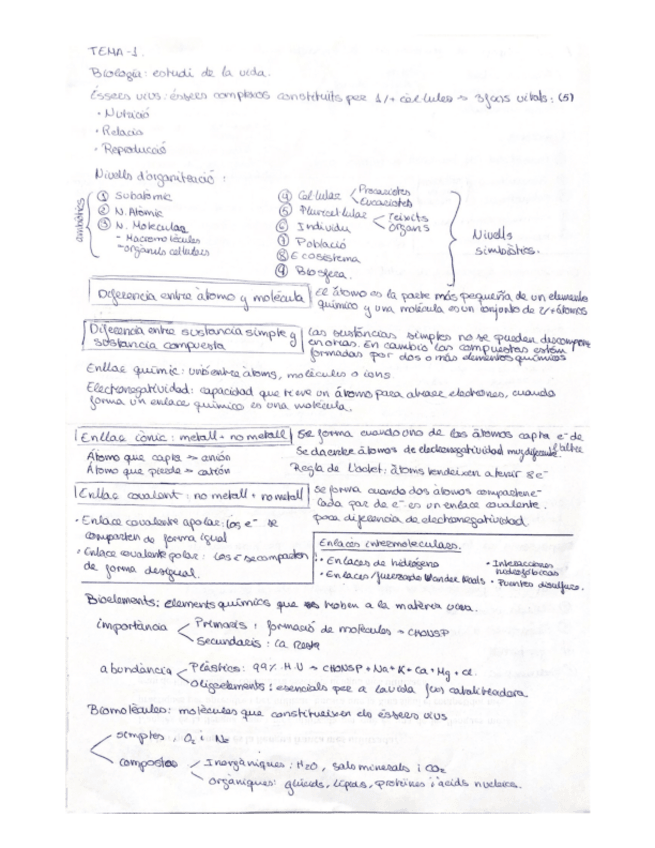 TEMA-1.
Biologia: estudi de la vida.
Éssers vius: éssers complexos constituïts per 1/+ cèl·lules → 3 fans vitals: (5)
· Nutrició
· Relacia
· Reproducció
Nivells d'organització:
① Subatòmic
② N. Atòmic
③ N. Molecular
- Macromolècules
- Orgànuls cel·lulars
④ Cel·lular
Procariotes
Eucariotes
⑤ Pluricel·lular
Teixits
Òrgans
⑥ Individu
⑦ Població
⑧ Ecosistema
⑨ Biosfera.
Nivells
Diferencia entre àtomo y molécula
El átomo es la parte más pequeña de un elemento
químico y una molécula es un conjunto de 2/+ átomos
Diferencia entre sustancia simple y
sustancia compuesta
Las sustancias simples no se pueden descomponer
en otras. En cambio las compuestas están
formadas por dos o más elementos químicos
Enllaç químic: unió entre àtoms, molècules o ions.
Electronegatividad: capacidad que tiene un átomo para atraer electrones, cuando
forma un enlace químico es una molécula.
Enllaç iònic: metall + no metall
Se forma cuando uno de los átomos capta e⁻ de
l'altre
Átomo que capta → anión
Átomo que pierde → catión
Se da entre átomos de electronegatividad muy diferente.
Regla de l'octet: àtoms tendeixen a tenir 8 e⁻
Enllaç covalent: no metall + no metall
Se forma cuando dos átomos comparten e⁻
Cada par de e⁻ es un enlace covalente.
poca diferencia de electronegatividad
· Enlace covalente apolar: los e⁻ se
comparten de forma igual
· Enlace covalente polar: los e⁻ se comparten
de forma desigual.
Enlaces intermoleculares.
· Enlaces de hidrógeno
· Enlaces/fuerzas de Van der Waals
· Interacciones
hidrofóbicas
· Puentes disulfuro.
Bioelements: elements químics que es troben a la matèria viva.
importància
Primaris: formació de molècules → CHONSP
Secundaris: la resta
abundància
Plàstics: 99% M.V → CHONSP + Na + K + Ca + Mg + Cl.
Oligoelements: esencials per a la vida funs catalitzadora
Biomolècules: molècules que constitueixen els éssers vius
simples: O₂ i N₂
compostos
Inorgàniques: H₂O, sals minerals i CO₂
Orgàniques: glúcids, lípids, proteïnes i àcids nucleics.